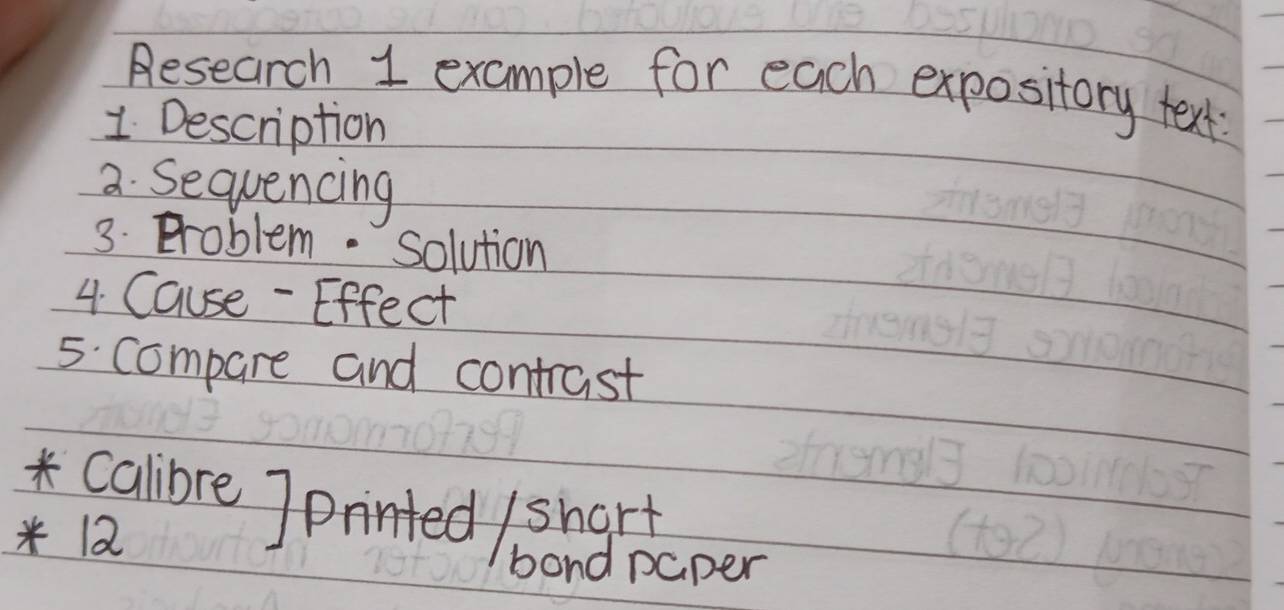 Research 1 example for each expository text:
1. Description
2. Sequencing
3. Problem - Solution
4. Cause - Effect
5. Compare and contrast
* Calibre ] printed / short
* 12 bond paper